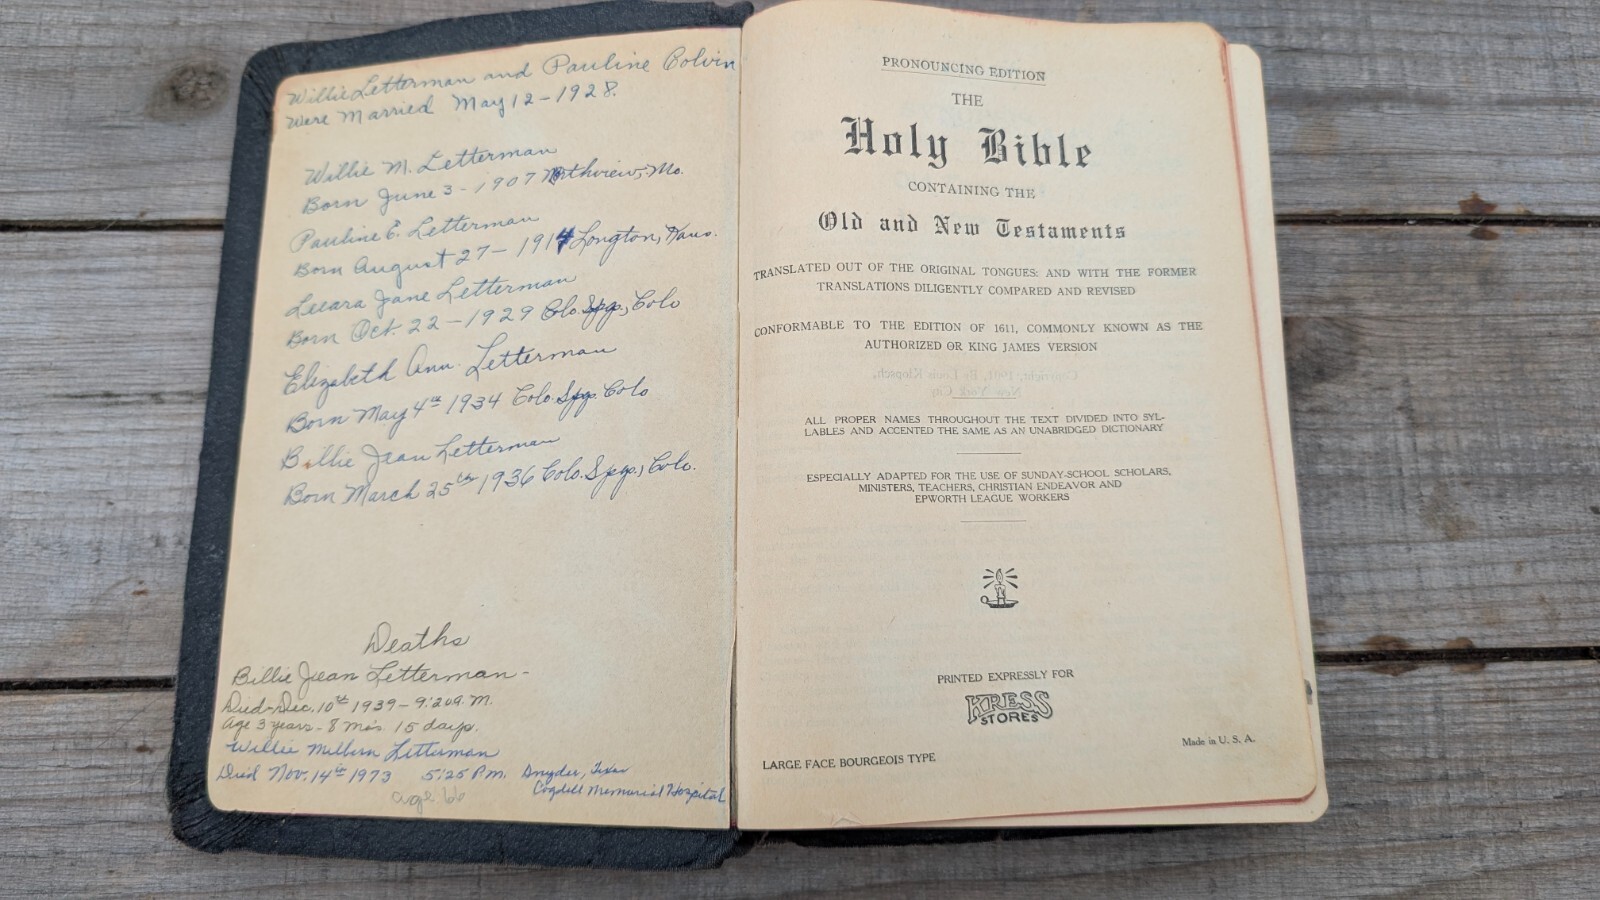 Willie Letterman and Pauline Colvin
Were Married May 12 - 1928.
Willie M. Letterman
Born June 3 - 1907 Northview, Mo.
Pauline E. Letterman
Born August 27 - 1914 Longton, Kans.
Leeara Jane Letterman
Born Oct. 22 - 1929 Colo. Spgs., Colo
Elizabeth Ann. Letterman
Born May 4th 1934 Colo. Spgs. Colo
Billie Jean Letterman
Born March 25th 1936 Colo. Spgs., Colo.
Deaths
Billie Jean Letterman -
Died - Dec. 10th 1939 - 9:20 A.M.
Age 3 years - 8 mo's 15 days.
Willie Milborn Letterman
Died Nov. 14th 1973 5:25 P.M. Snyder, Texas
Cogdell Memorial Hospital
age 66
PRONOUNCING EDITION
THE
Holy Bible
CONTAINING THE
Old and New Testaments
TRANSLATED OUT OF THE ORIGINAL TONGUES: AND WITH THE FORMER
TRANSLATIONS DILIGENTLY COMPARED AND REVISED
CONFORMABLE TO THE EDITION OF 1611, COMMONLY KNOWN AS THE
AUTHORIZED OR KING JAMES VERSION
Copyright, 1901, By Louis Klopsch,
New York City
ALL PROPER NAMES THROUGHOUT THE TEXT DIVIDED INTO SYL-
LABLES AND ACCENTED THE SAME AS AN UNABRIDGED DICTIONARY
ESPECIALLY ADAPTED FOR THE USE OF SUNDAY-SCHOOL SCHOLARS,
MINISTERS, TEACHERS, CHRISTIAN ENDEAVOR AND
EPWORTH LEAGUE WORKERS
PRINTED EXPRESSLY FOR
KRESS
STORES
Made in U. S. A.
LARGE FACE BOURGEOIS TYPE